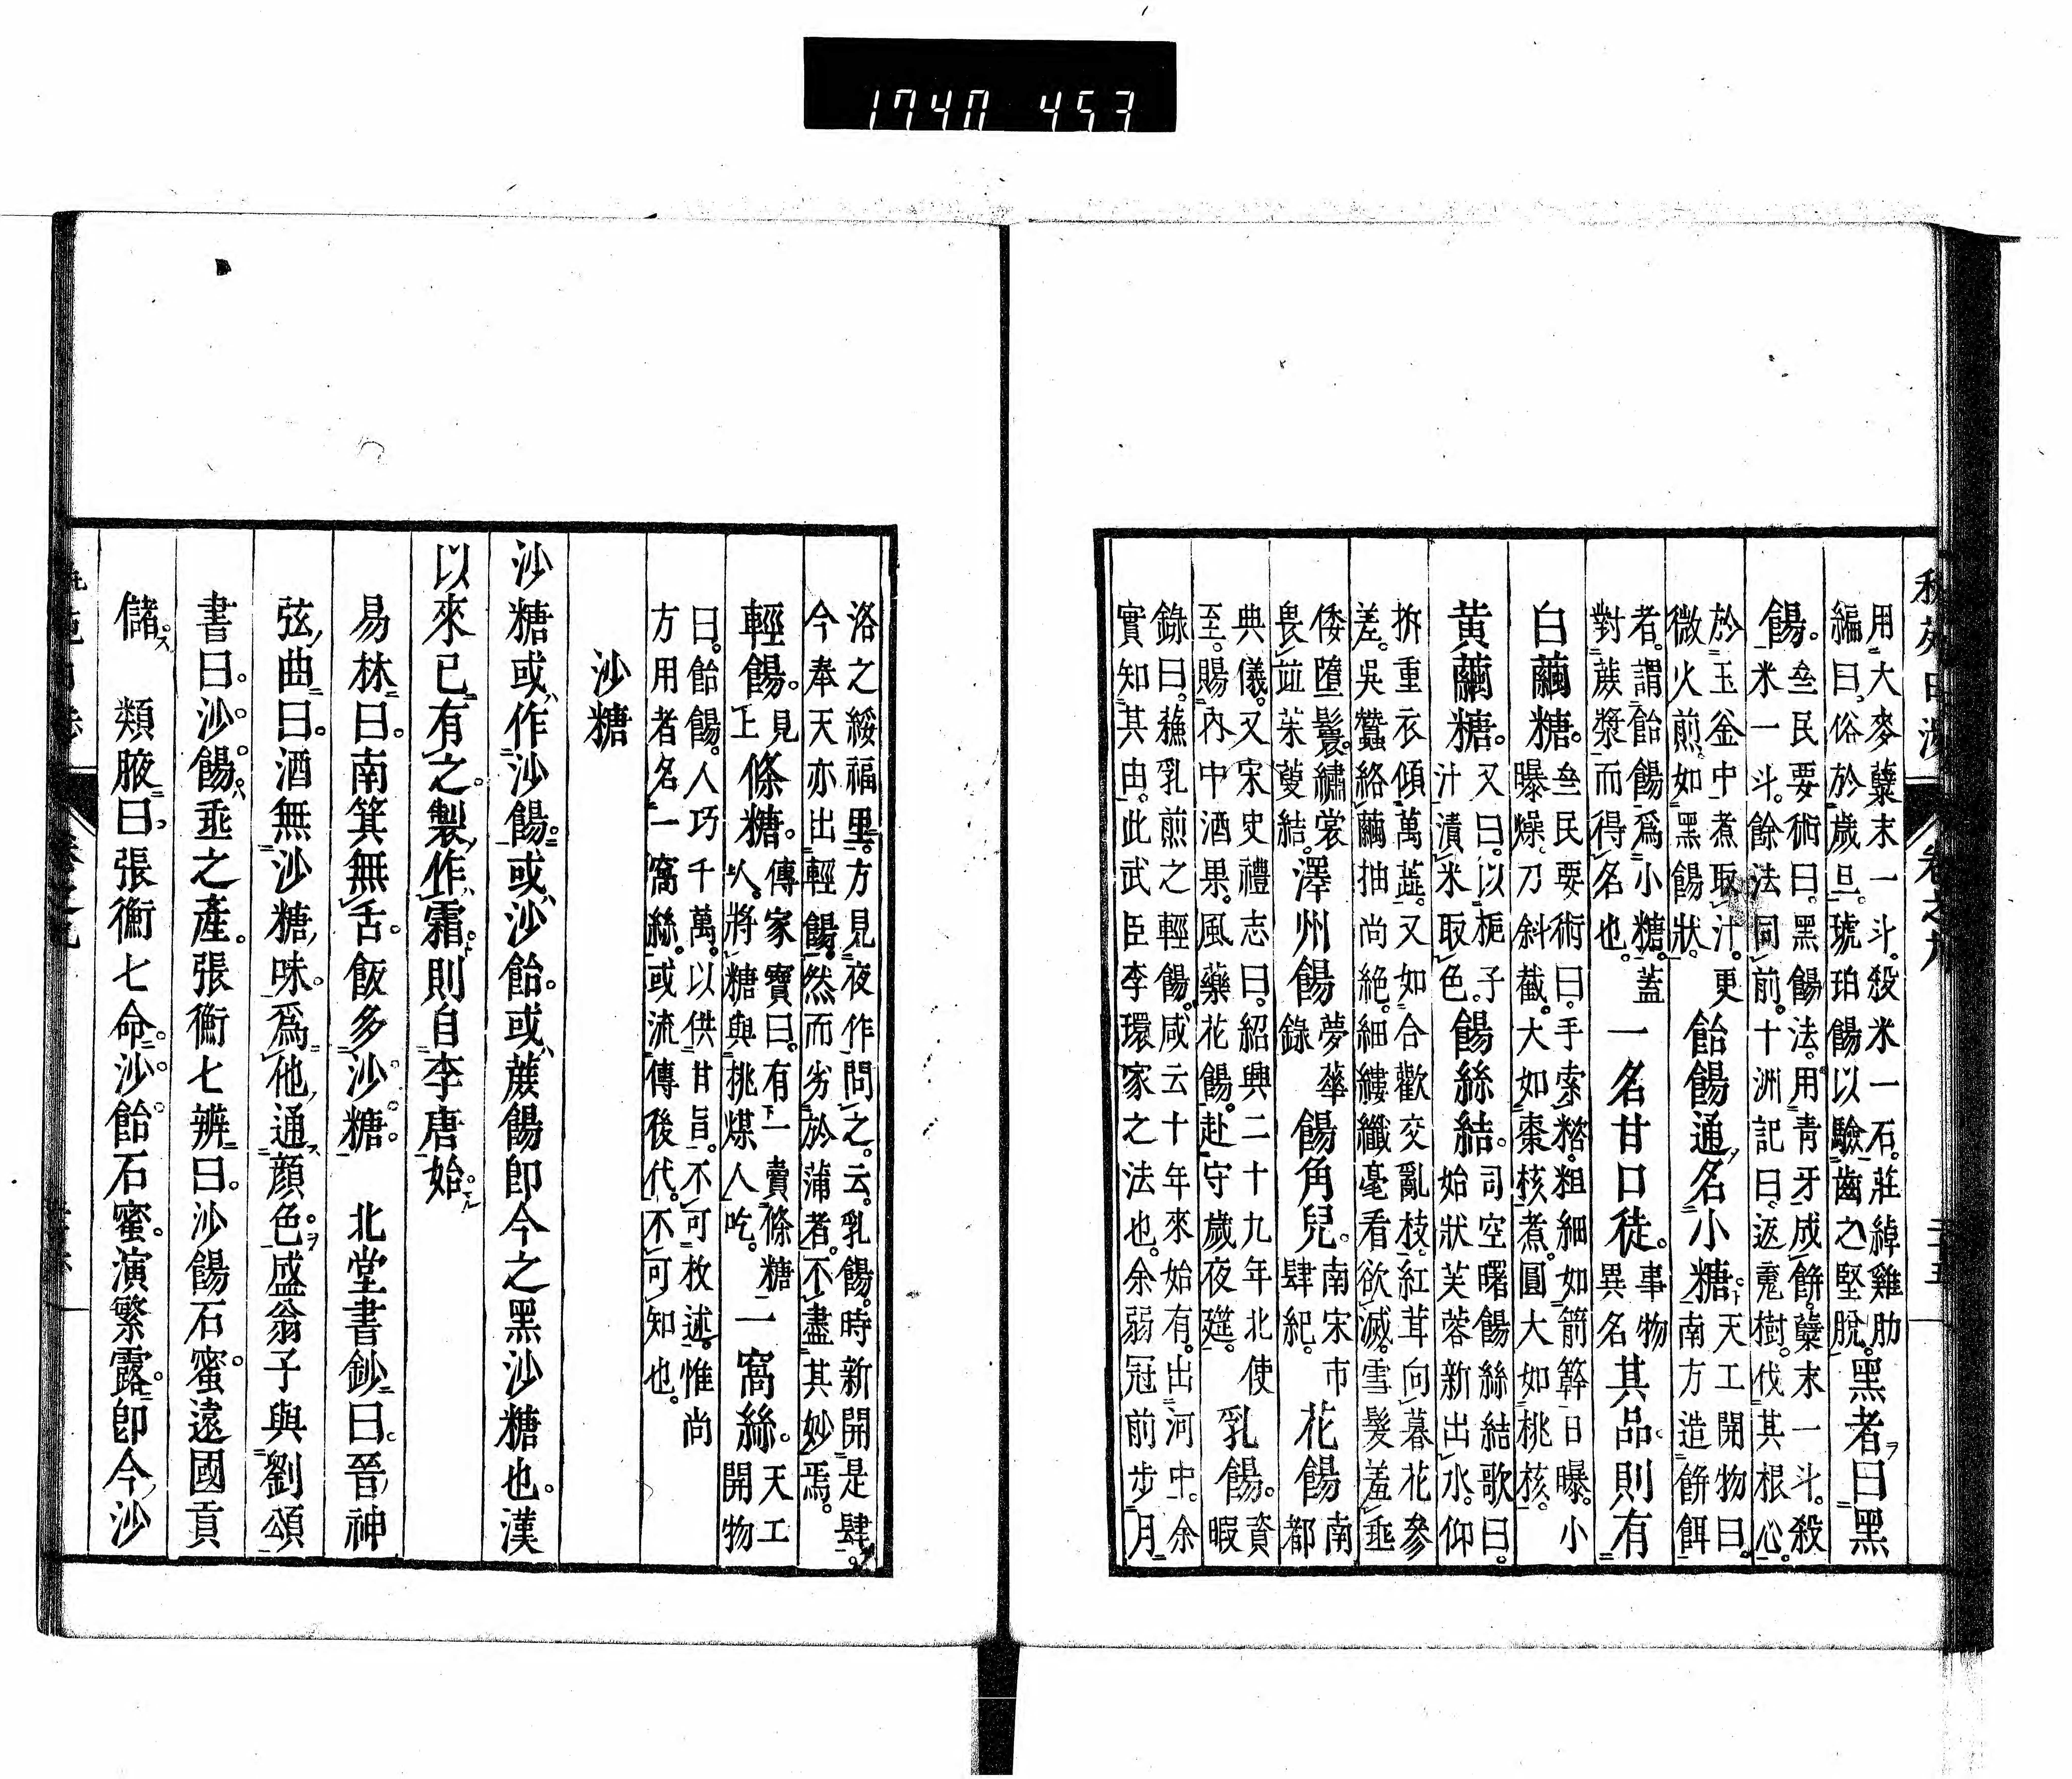 秇苑日涉 卷之九 二十五
用大麥蘖末一斗。殺米一石。莊綽雞肋
編曰。俗於歲旦。琥珀餳以驗齒之堅脫。
黑者曰黑
餳。
亝民要術曰。黑餳法。用青牙成餅。蘖末一斗。殺
米一斗。餘法同前。十洲記曰。返䰟樹。伐其根心。
於玉釜中煮取汁。更
微火煎。如黑餳狀。
飴餳通名小糖。
天工開物曰。
南方造餅餌
者。謂飴餳爲小糖。蓋
對蔗漿而得名也。
一名甘口徒。
事物
異名
其品則有
白繭糖。
亝民要術曰。手索糣。粗細如箭簳日曝。小
曝燥。刀斜截。大如棗核煮。圓大如桃核。
黃繭糖。
又曰。以梔子
汁漬米取色。
餳絲結。
司空曙餳絲結歌曰。
始狀芙蓉新出水。仰
拆重衣傾萬蘂。又如合歡交亂枝。紅茸向暮花參
差。吳蠶絡繭抽尚絕。細縷纖毫看欲滅。雪髮羞垂
倭墮鬟。繡裳
畏竝茱萸結。
澤州餳
夢華
錄
餳角兒。
南宋市
肆紀。
花餳
南
都
典儀。又宋史禮志曰。紹興二十九年北使
至。賜內中酒果。風藥花餳。赴守歲夜筵。
乳餳。
資
暇
錄曰。蘓乳煎之輕餳。咸云十年來始有。出河中。余
實知其由。此武臣李環家之法也。余弱冠前步月
洛之綏福里。方見夜作問之。云。乳餳。時新開是肆。
今奉天亦出輕餳。然而劣於蒲者。不盡其妙焉。
輕餳。
見
上
條糖。
傳家寶曰。有一賣條糖
人。將糖與挑煤人吃。
一窩絲。
天工
開物
曰。飴餳。人巧千萬。以供甘旨。不可枚述。惟尚
方用者名一窩絲。或流傳後代。不可知也。
沙糖
沙糖或作沙餳。或沙飴。或蔗餳即今之黑沙糖也。漢
以來已有之。製作霜。則自李唐始。
易林曰。南箕無舌。飯多沙糖 北堂書鈔曰。晉神
弦曲曰。酒無沙糖味。爲他通顏色。盛翁子與劉頌
書曰。沙餳垂之產。張衡七辨曰。沙餳石蜜。遠國貢
儲。 類腋曰。張衡七命。沙飴石蜜。演繁露。即今沙